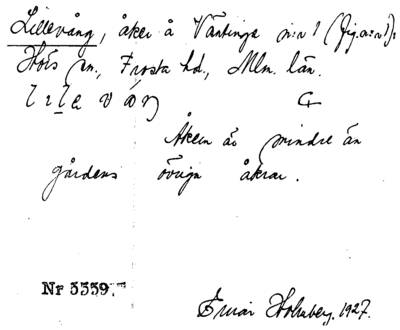 Lillevång, åker å Väntinge n:r 1 (fig. a:r 1).
Hörs sn., Frosta hd., Mlm. län.
lıle våŋ
Åkern är mindre än
gårdens övriga åkrar.
Nr 5559.
Einar Holmberg. 1927.